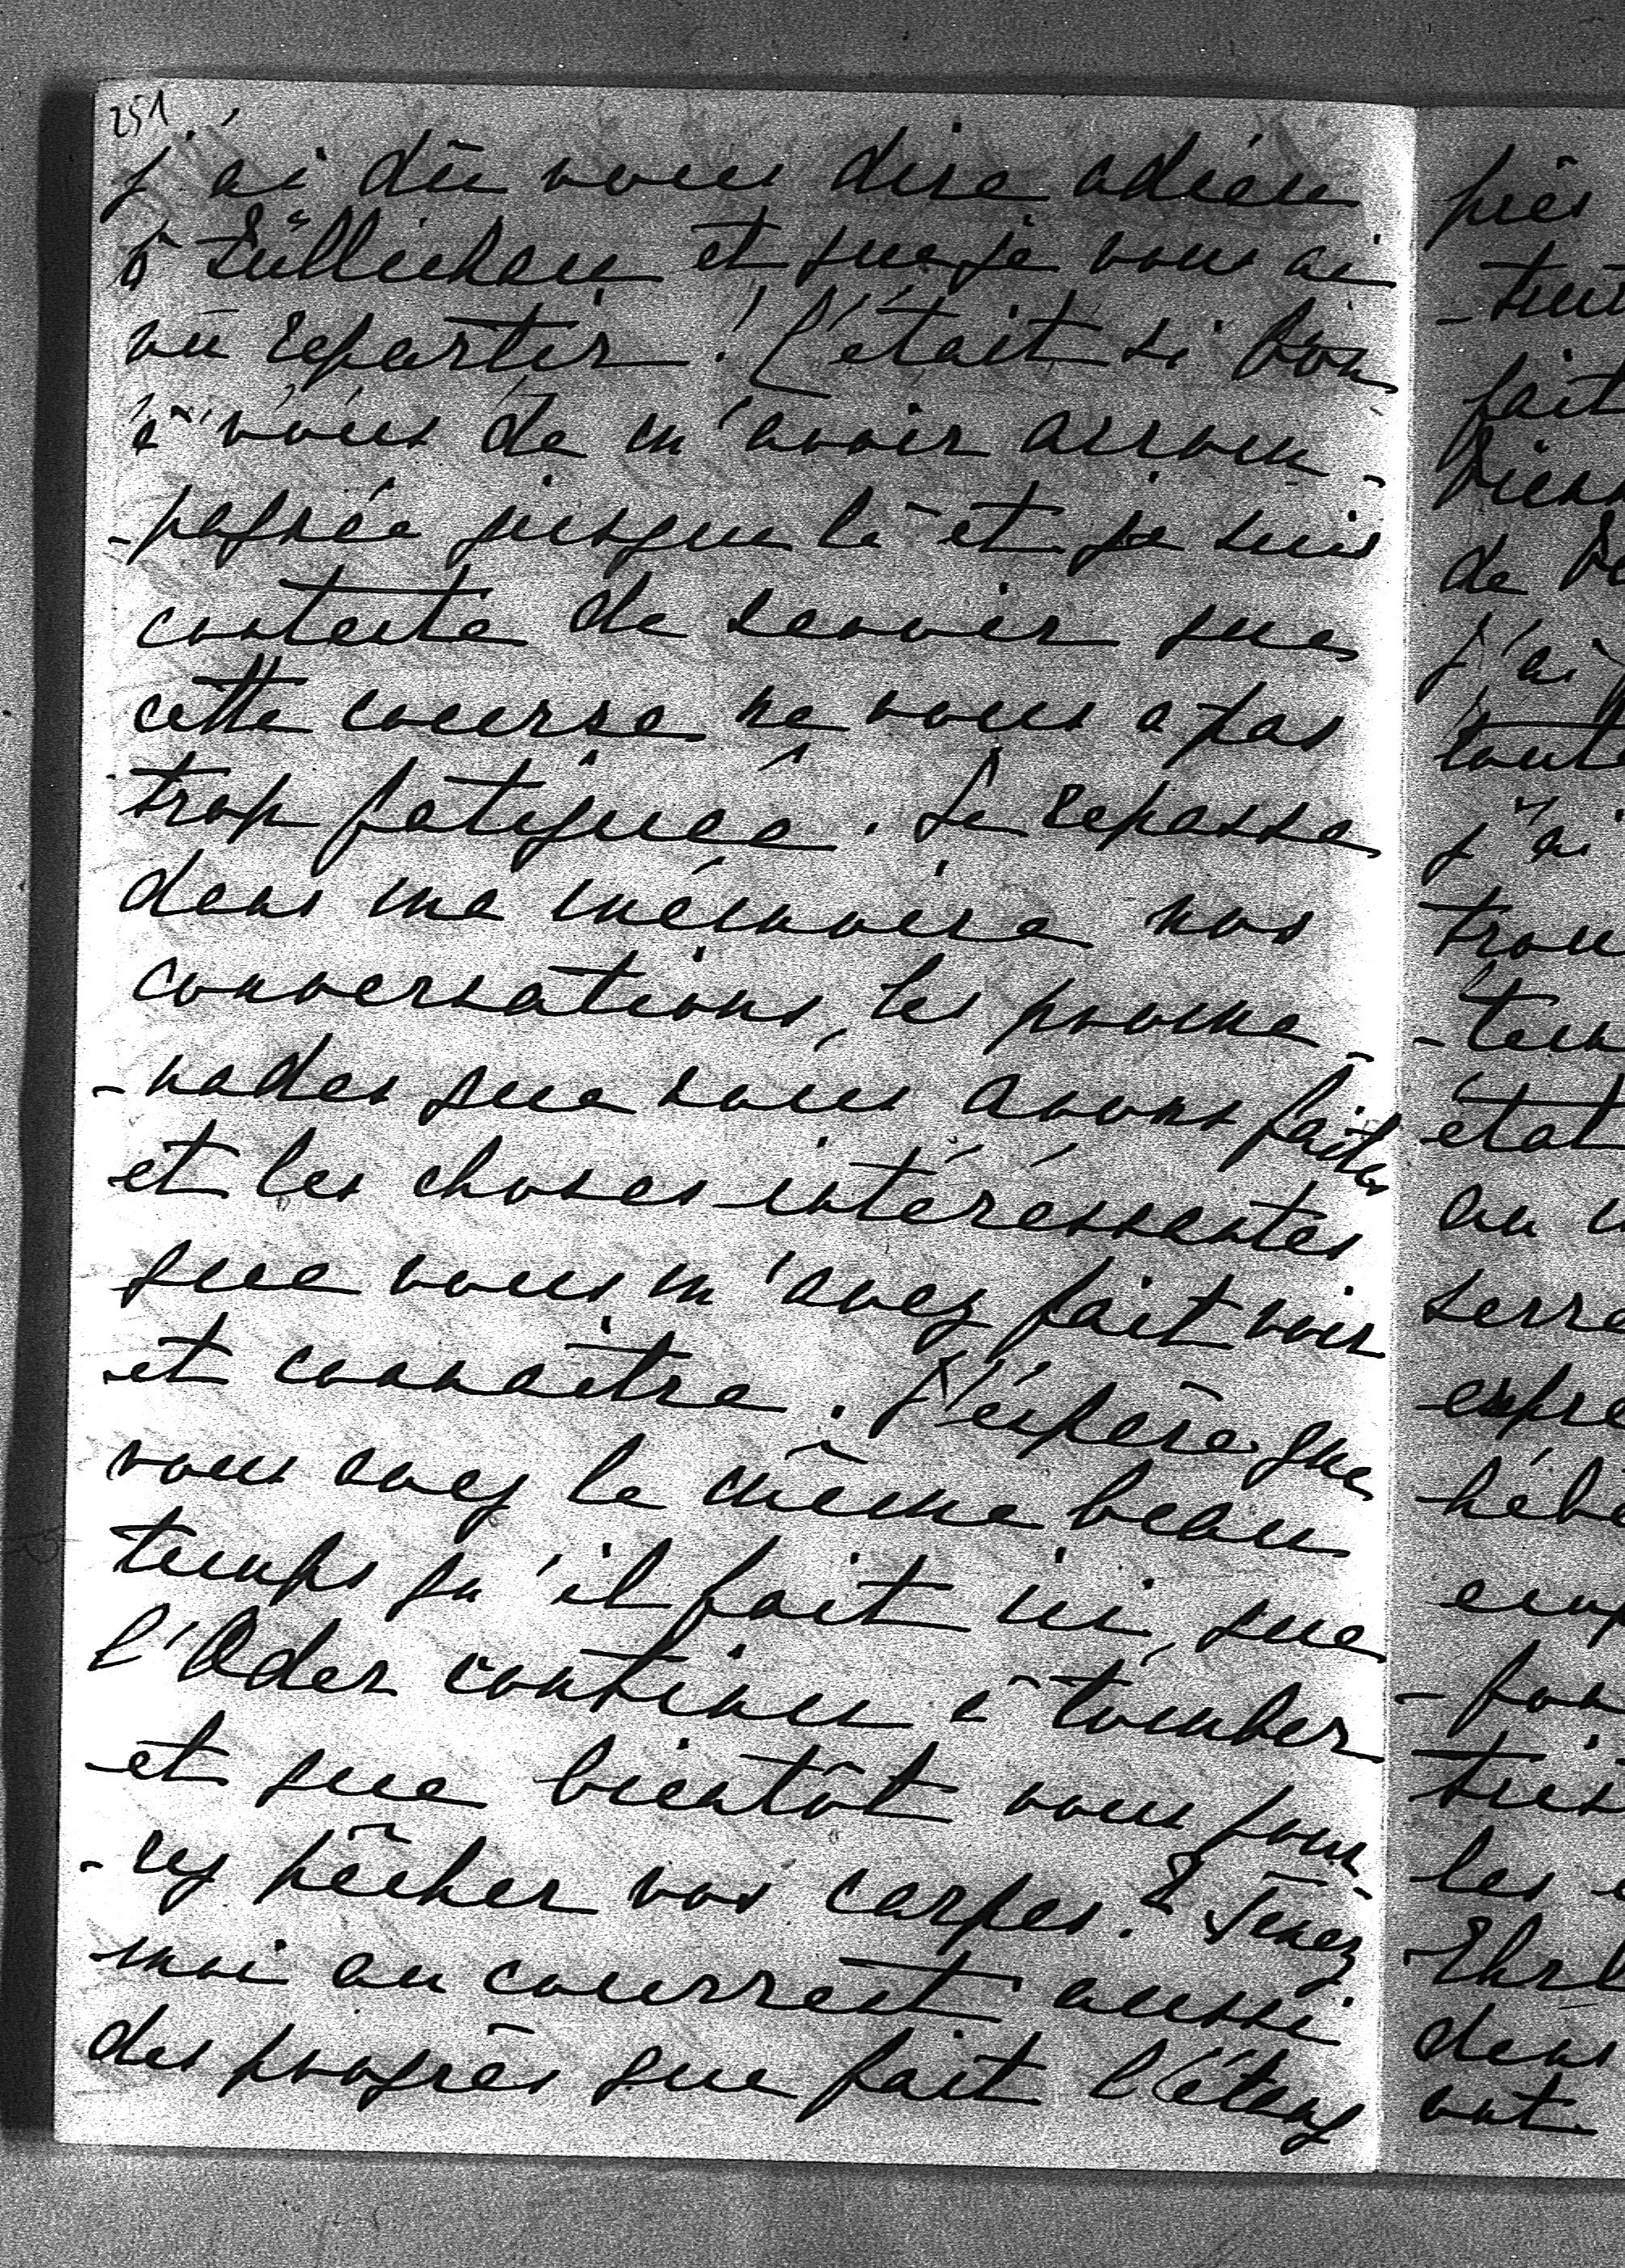 251
j'ai dû vous dire adieu
à Züllichau et que je vous ai
vu repartir! C'était si bon
à vous de m'avoir accom-
-pagnée jusque là et je suis
contente de savoir que
cette course ne vous a pas
trop fatiguée. Je repasse
dans ma mémoire nos
conversations, les prome-
-nades que nous avons faites
et les choses intéressantes
que vous m'avez fait voir
et connaître. J'espère que
vous avez le même beau
temps qu'il fait ici, que
l'Oder continue à tomber
et que bientôt vous pour-
-rez pêcher vos carpes? Tenez-
moi au courrent aussi
des progrès que fait l'étang
près
fait
de
j'ai
toute
j'ai
trou
-tem
état
au
serre
expre
hébé
les
dans
ont